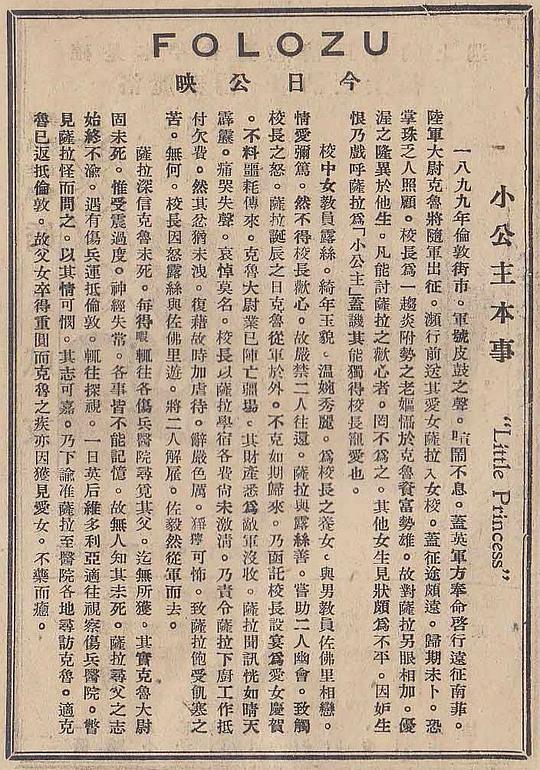 FOLOZU
今日公映
小公主本事 "Little Princess"
一八九九年倫敦街市。軍號皮鼓之聲。喧鬧不息。蓋英軍方奉命啓行遠征南菲。
陸軍大尉克魯將隨軍出征。瀕行前送其愛女薩拉入女校。蓋征途頗遠。歸期未卜。恐
掌珠乏人照顧。校長爲一趨炎附勢之老嫗懾於克魯資富勢雄。故對薩拉另眼相加。優
渥之隆異於他生。凡能討薩拉之歡心者。罔不爲之。其他女生見狀頗爲不平。因妒生
恨乃戲呼薩拉爲「小公主」蓋譏其能獨得校長寵愛也。
校中女教員露絲。綺年玉貌。溫婉秀麗。爲校長之養女。與男教員佐佛里相戀。
情愛彌篤。然不得校長歡心。故嚴禁二人往還。薩拉與露絲善。嘗助二人幽會。致觸
校長之怒。薩拉誕辰之日克魯從軍於外。不克如期歸來。乃函託校長設宴爲愛女慶賀
。不料噩耗傳來。克魯大尉業已陣亡疆場。其財產悉爲敵軍沒收。薩拉聞訊恍如晴天
霹靂。痛哭失聲。哀悼莫名。校長以薩拉學宿各費尙未激清。乃責令薩拉下廚工作抵
付欠費。然其忿猶未洩。復藉故時加虐待。辭嚴色厲。猙獰可怖。致薩拉飽受飢寒之
苦。無何。校長因怒露絲與佐佛里遊。將二人解雇。佐毅然從軍而去。
薩拉深信克魯未死。每得暇輒往各傷兵醫院尋覓其父。迄無所獲。其實克魯大尉
固未死。惟受震過度。神經失常。各事皆不能記憶。故無人知其未死。薩拉尋父之志
始終不渝。遇有傷兵運抵倫敦。輒往探視。一日英后維多利亞適往視察傷兵醫院。瞥
見薩拉怪而問之。以其情可憫。其志可嘉。乃下諭准薩拉至醫院各地尋訪克魯。適克
魯已返抵倫敦。故父女卒得重圓而克魯之疾亦因獲見愛女。不藥而癒。